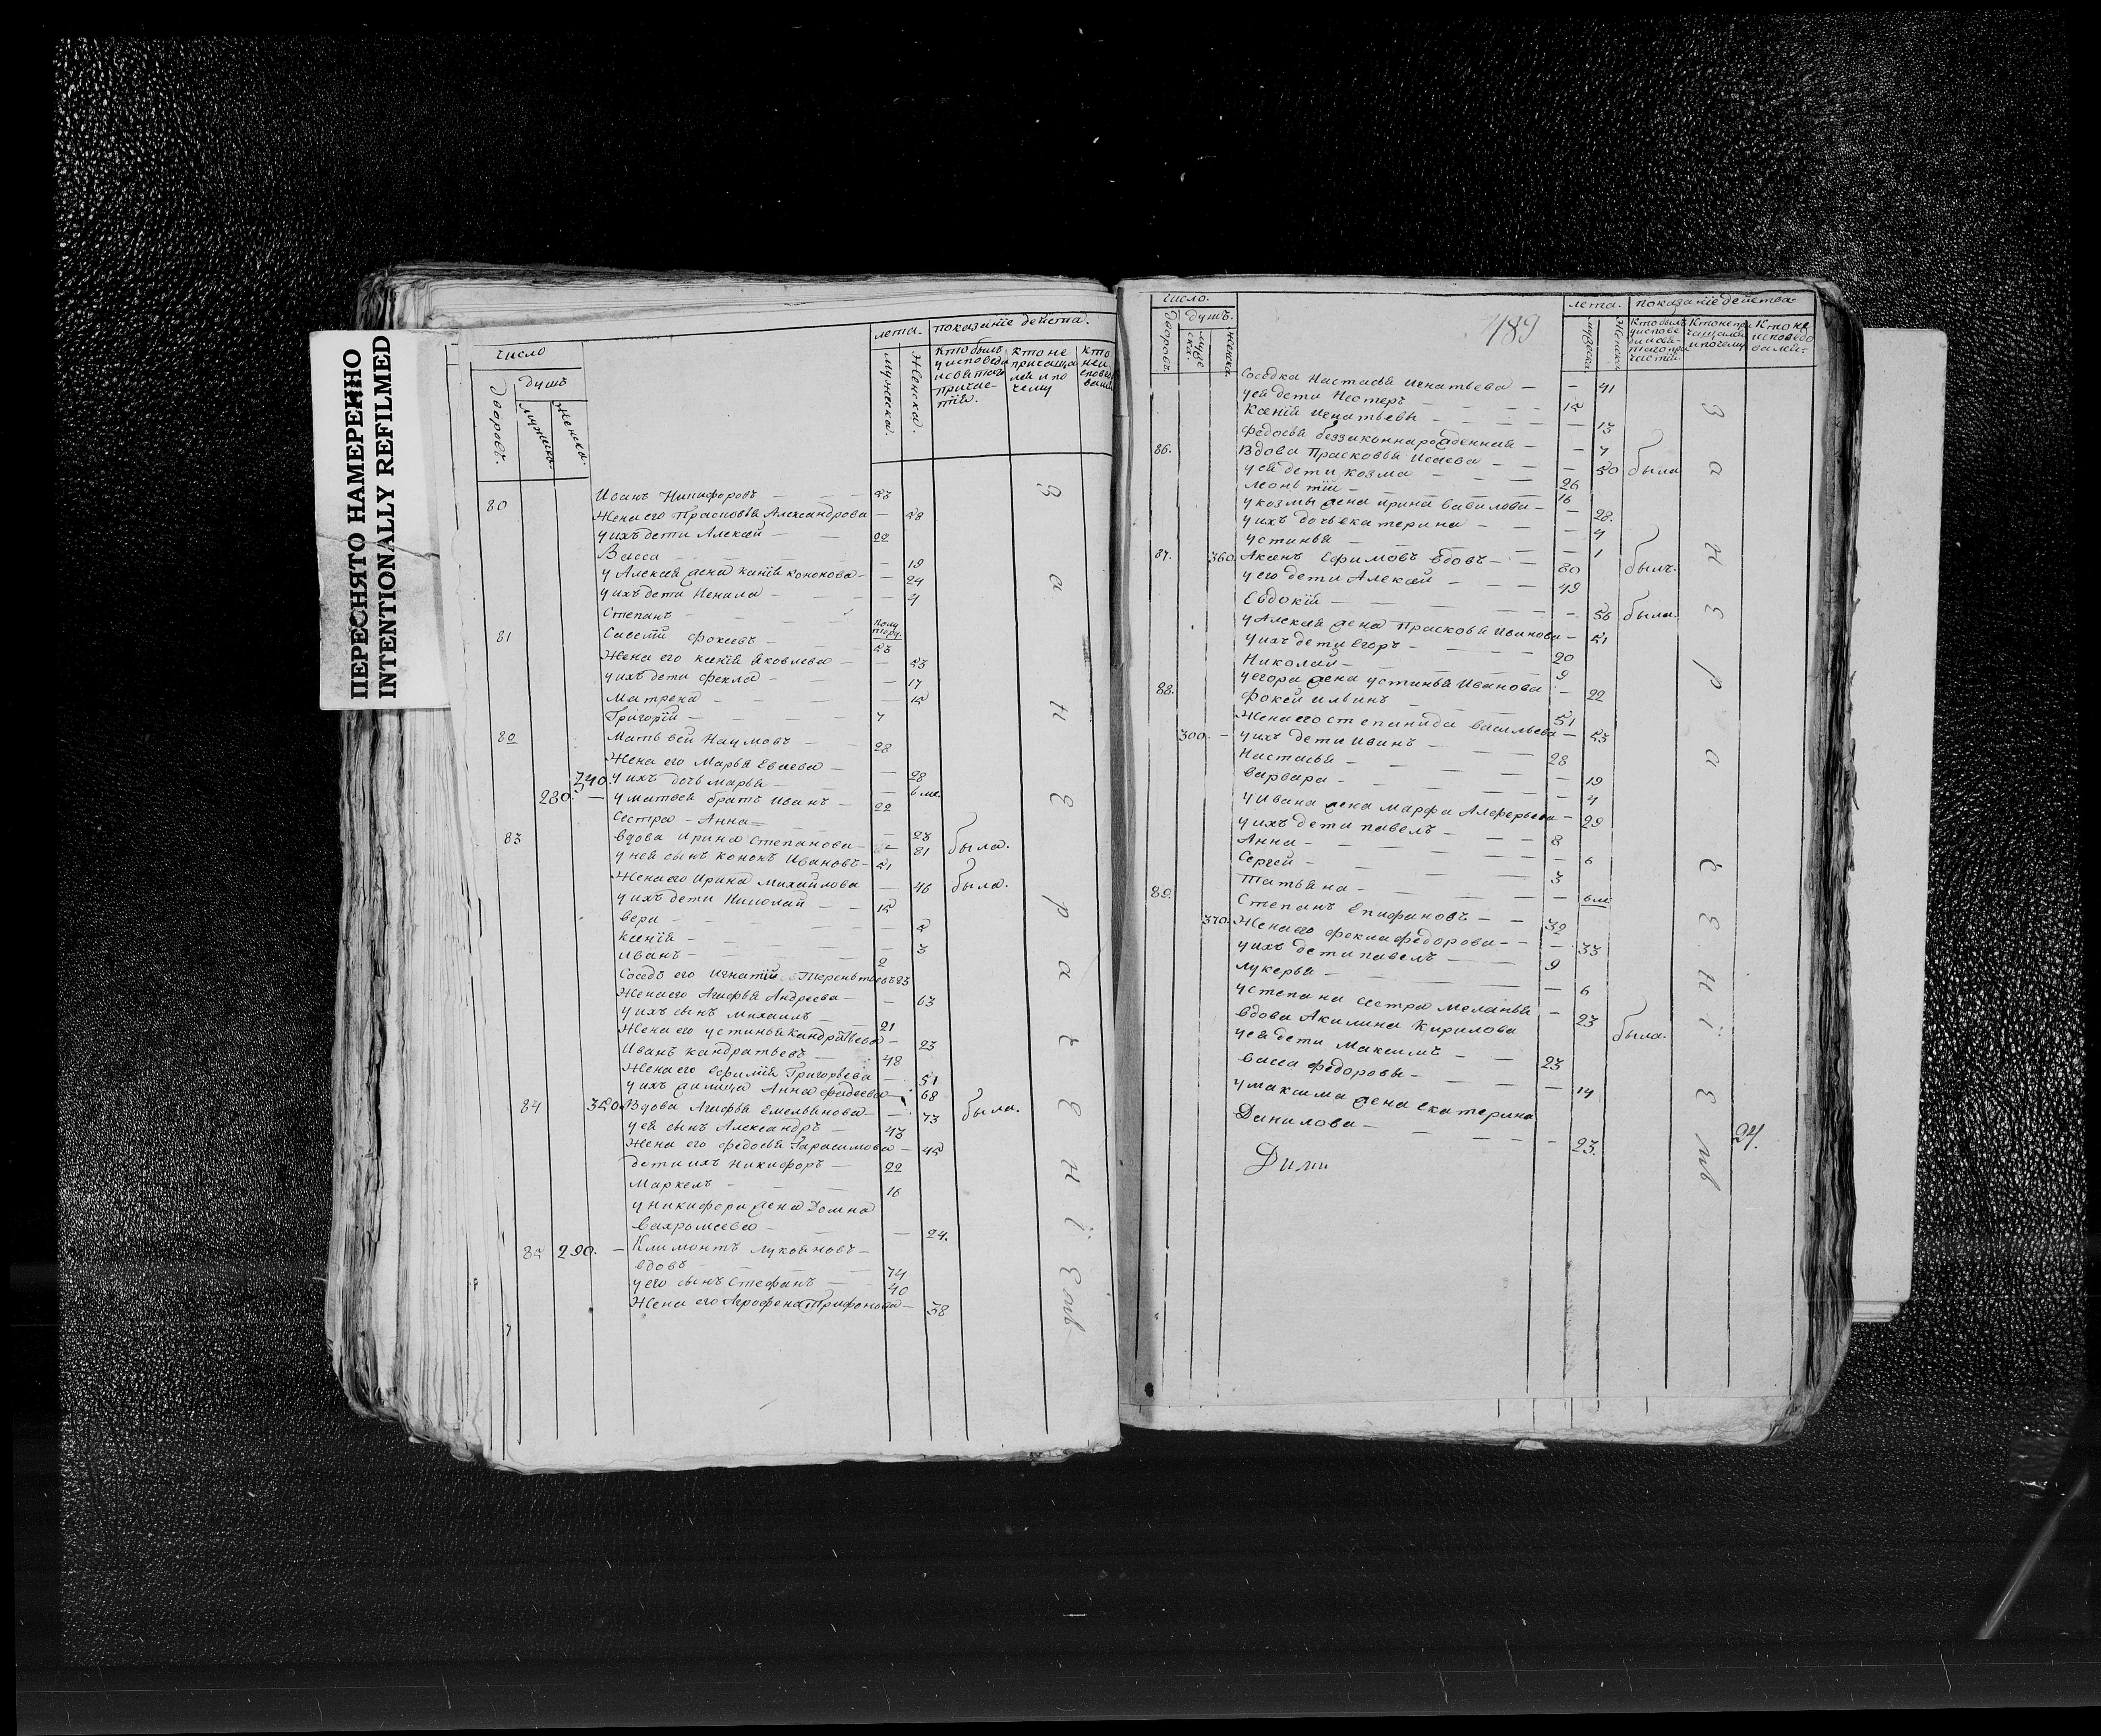 ПЕРЕСНЯТО НАМЕРЕННО
INTENTIONALLY REFILMED
число
дворовъ.
душъ
мужеска.
женска.
лета.
мужеска.
женска.
показанїе действа.
кто былъ
у исповеди
и святаго
причас-
тїя.
кто не
причаща
лся и по
чему
кто
не и
спове
80 Иванъ Никифоровъ — 53
Жена его Прасковья Александрова — 58
у ихъ дети Алексей — 22
Васса — 19
у Алексея жена Ксенїя Кононова — 24
у ихъ дети Ненила — 4
Степанъ — полу
тору.
81 Савелїй Фокеевъ — 53
Жена его Ксенїя Яковлева — 53
у ихъ дети Фекла — 17
Матрена — 15
Григорїй — 7
82 Матвей Наумовъ — 28
Жена его Марья Евсева — 28
340. у ихъ дочь Марья — 6 ме.
280. — у Матвея братъ Иванъ — 22
Сестра — Анна — 23
83 вдова Ирина Степанова — 81 была.
у ней сынъ Кононъ Ивановъ — 51
Жена его Ирина Михайлова — 46 была.
у ихъ дети Николай — 15
вера — 5
Ксенїя — 3
Иванъ — 2
Соседъ его Игнатїй Терентьевъ 63
Жена его Агафья Андреева — 63
у ихъ сынъ Михаилъ — 21
Жена его Устинья Кандратьева — 23
Иванъ Кандратьевъ — 48
Жена его Ефимия Григорьева — 51
у ихъ жилица Анна Фадеева — 68
84 350 Вдова Агафья Емельянова — 73 была.
у ей сынъ Александръ — 43
Жена его Федосья Гарасимова — 45
дети ихъ Никифоръ — 22
Маркелъ — 16
у Никифора жена Домна
Вахрамеева — 24.
85 290. — Климонтъ Лукояновъ —
вдовъ — 74
у его сынъ Стефанъ — 40
Жена его Агрофена Трифонова — 38
за нерачениемъ
489
число.
дворовъ.
душъ.
муже
ска.
женска.
лета.
мужеска.
женска.
показанїе действа.
Кто былъ
у испове
ди и свя-
таго при
частїя.
Кто не при
чащался
и почему
Кто не
исповедо
вался-
Соседка Настасья Игнатьева — 41
у ей дети Нестеръ — 15
Ксенїя Игнатьевы — 13
Федосья беззаконнарожденная — 7
86. Вдова Прасковья Исаева — 50 была
у ей дети Козма — 26
Леонтїй — 16
у Козмы жена Ирина Вавилова — 28.
у ихъ дочь Екатерина — 4
Устинья — 1
87. 360. Аксенъ Ефимовъ вдовъ — 80 былъ.
у его дети Алексей — 49
Евдокїя — 56 была.
у Алексея жена Прасковья Иванова — 51
у ихъ дети Егоръ — 20
Николай — 9
у Егора жена Устинья Иванова — 22
88. Фокей Ильинъ — 51
Жена его Степанида Васильева — 53
300. — у ихъ дети Иванъ — 28
Настасья — 19
Варвара — 4
у Ивана жена Марфа Алферьева — 29
у ихъ дети Павелъ — 8
Анна — 6
Сергей — 3
Татьяна — 6 м
89. Степанъ Епифановъ — 32
370. Жена его Фекла Федорова — 33
у ихъ дети Павелъ — 9
Лукерья — 6
у Степана сестра Меланья — 23
вдова Акилина Кирилова была.
у ей дети Максимъ — 23
Васса Федоровы — 14
у Максима жена Екатерина
Данилова — 23.
за нерачениемъ